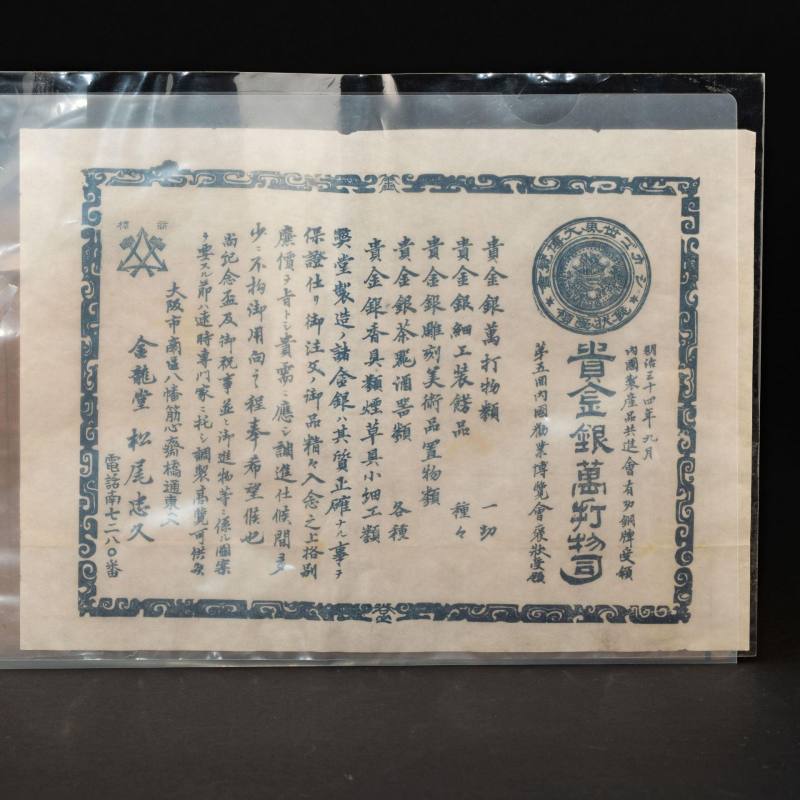 明治三十四年九月
內國製產品共進會有功銅牌受領
貴金銀萬打物司
第五回內國勸業博覽會褒狀受領
貴金銀萬打物類 一切
貴金銀細工裝餝品 種々
貴金銀雕刻美術品置物類
貴金銀茶器酒器類 各種
貴金銀香具類煙草具小細工類
弊堂製造ノ諸金銀ハ其質正確ナル事ヲ
保證仕リ御注文ノ御品精々入念之上格別
廉價ヲ旨トシ貴需ニ應シ調進仕候間多
少ニ不拘御用向之程奉希望候也
尚記念盃及御祝事並ニ御進物等ニ係ル圖案
ヲ要スル節ハ速時專門家ニ托シ調製高覽可供候
大阪市南區八幡筋心齋橋通東入
金龍堂 松尾忠久
電話南七二八〇番